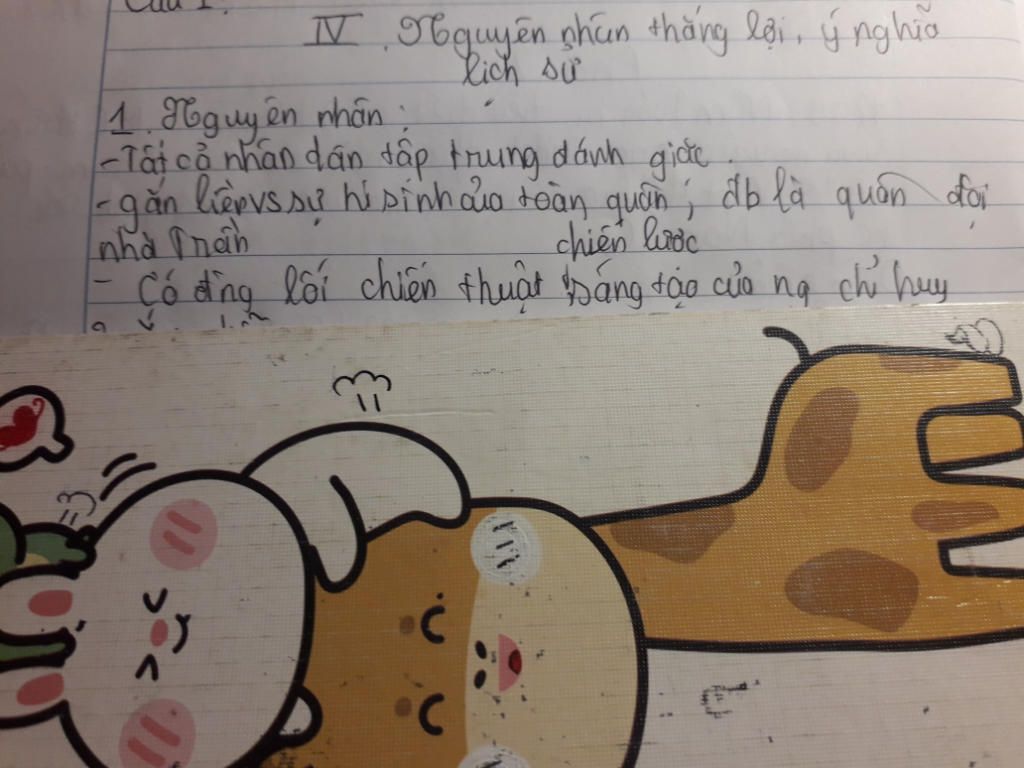 Câu 1:
IV. Nguyên nhân thắng lợi, ý nghĩa
lịch sử
1. Nguyên nhân:
- Tất cả nhân dân tập trung đánh giặc.
- gắn liền vs sự hi sinh của toàn quân, đb là quân đội
nhà Trần
chiến lược
- Có đng lối chiến thuật sáng tạo của ng chỉ huy